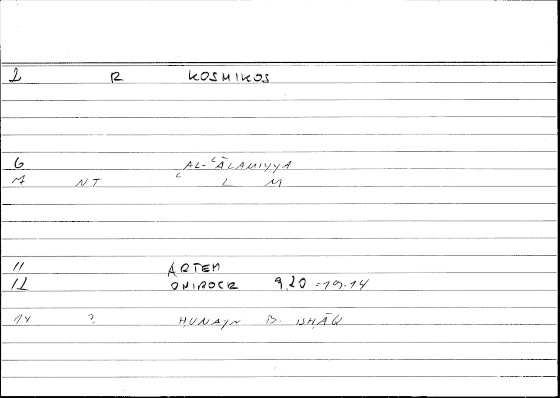 2 R KOSMIKOS
6 AL-ʿĀLAMIYYA
7 NT ʿ L M
11 ARTEM
12 ONIROCR 9,20 - 19.14
14 ? ḤUNAYN B. ISḤĀQ